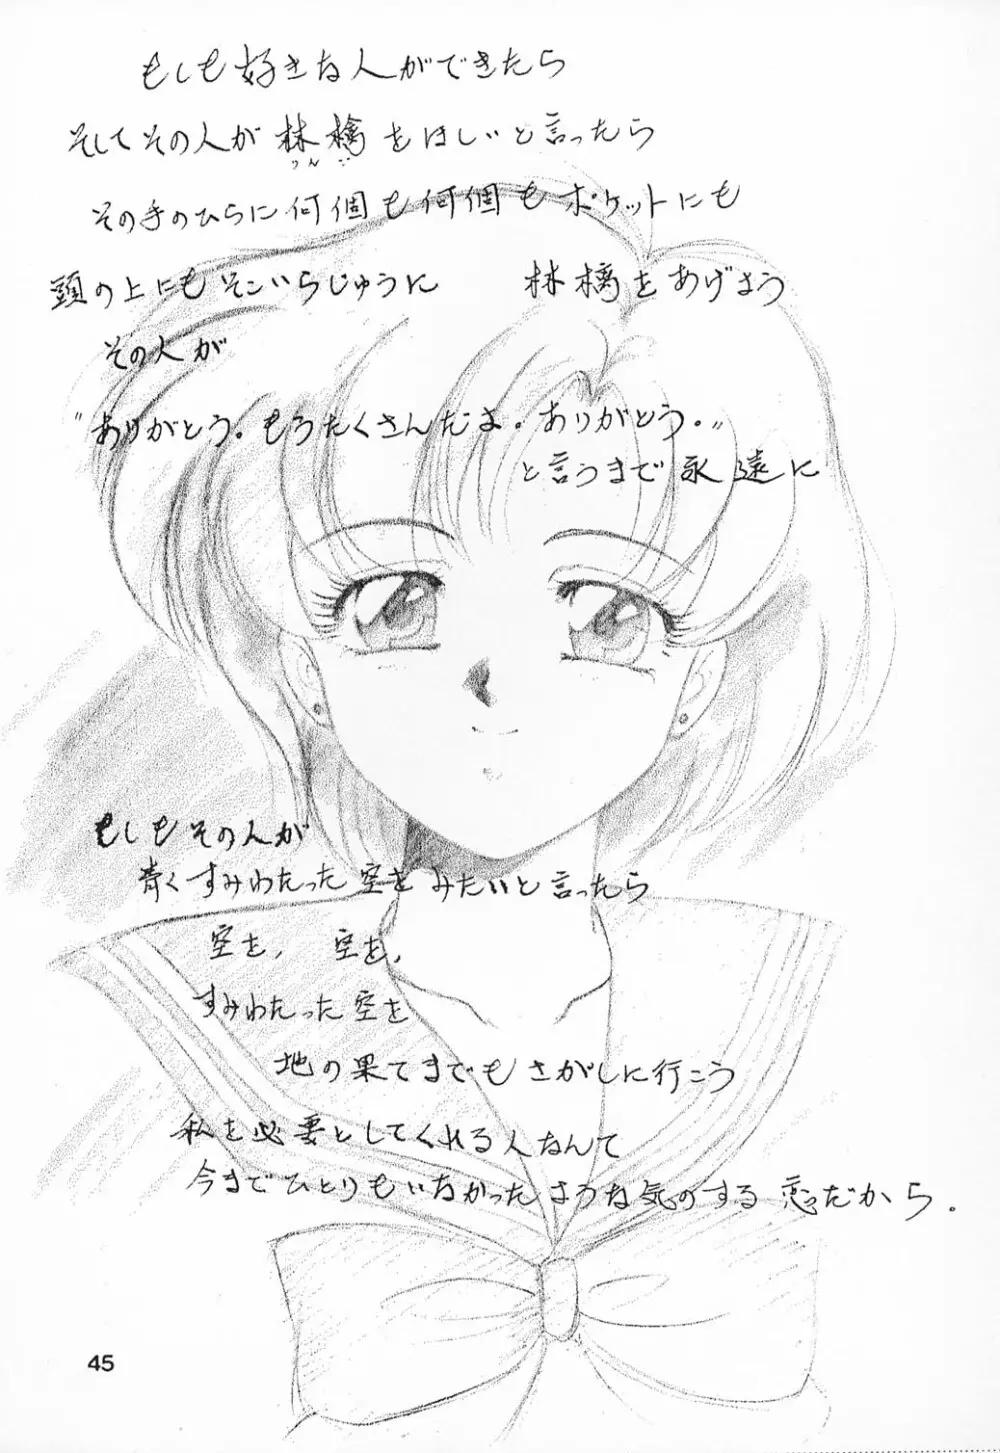 もしも好きな人ができたら
そしてその人が林檎をほしいと言ったら
りんご
その手のひらに何個も何個もポケットにも
頭の上にもそこいらじゅうに 林檎をあげよう
その人が
"ありがとう。もうたくさんだよ。ありがとう。"
と言うまで永遠に
もしもその人が
青くすみわたった空をみたいと言ったら
空を, 空を,
すみわたった空を
地の果てまでもさがしに行こう
私を必要としてくれる人なんて
今までひとりもいなかったような気のする恋だから。
45